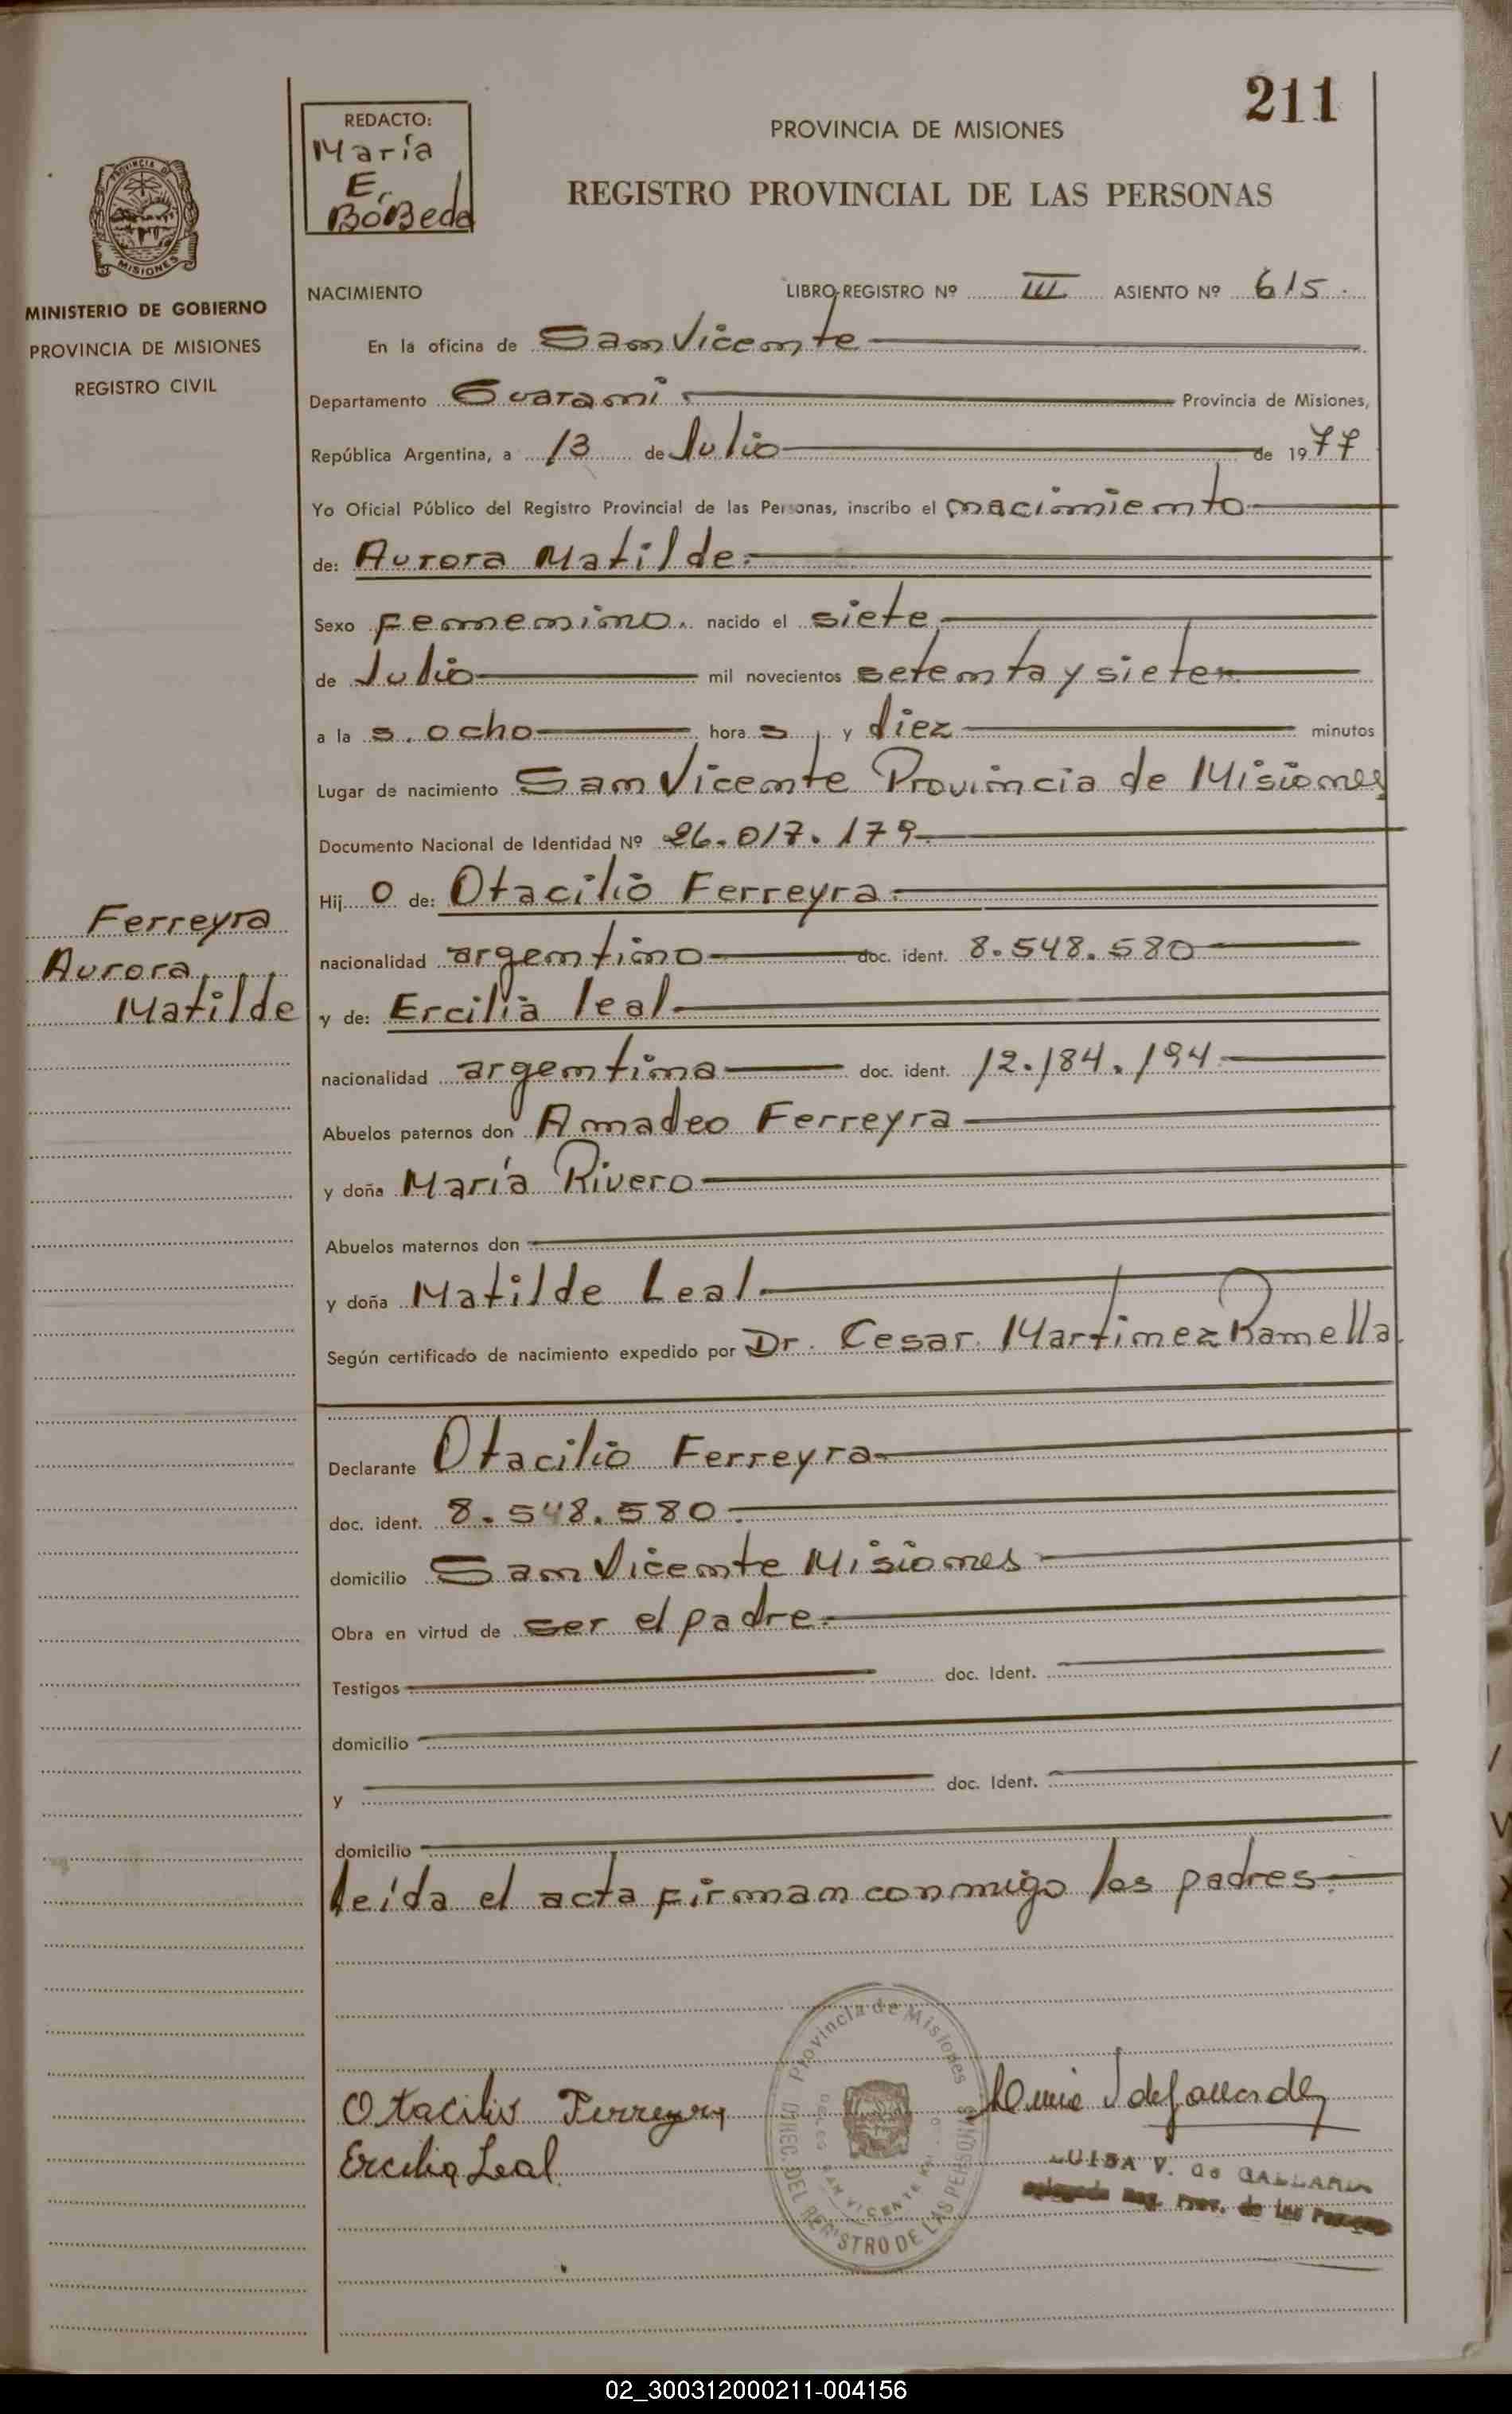 211
REDACTO:
María
E.
BóBeda
PROVINCIA DE MISIONES
REGISTRO PROVINCIAL DE LAS PERSONAS
PROVINCIA DE
MISIONES
MINISTERIO DE GOBIERNO
PROVINCIA DE MISIONES
REGISTRO CIVIL
NACIMIENTO LIBRO-REGISTRO Nº III ASIENTO Nº 615.
En la oficina de San Vicente
Departamento Guarani Provincia de Misiones,
República Argentina, a 13 de Julio de 1977
Yo Oficial Público del Registro Provincial de las Personas, inscribo el nacimiento
de: Aurora Matilde.
Sexo Femenino. nacido el siete
de Julio mil novecientos setenta y siete
a la s. ocho hora s y diez minutos
Lugar de nacimiento San Vicente Provincia de Misiones
Documento Nacional de Identidad Nº 26.017.179
Hij o de: Otacilio Ferreyra
nacionalidad argentino doc. ident. 8.548.580
y de: Ercilia leal
nacionalidad argentina doc. ident. 12.184.194
Abuelos paternos don Amadeo Ferreyra
y doña María Rivero
Abuelos maternos don
y doña Matilde Leal
Según certificado de nacimiento expedido por Dr. Cesar Martinez Ramella
Ferreyra
Aurora
Matilde
Declarante Otacilio Ferreyra
doc. ident. 8.548.580
domicilio San Vicente Misiones
Obra en virtud de ser el padre
Testigos doc. Ident.
domicilio
y doc. Ident.
domicilio
leída el acta firman conmigo los padres.
Otacilio Ferreyra
Ercilia Leal
Provincia de Misiones
DIREC. DEL REGISTRO DE LAS PERSONAS
SAN VICENTE
LUISA V. de GALLARDO
Reg. Prov. de las Personas
02_300312000211-004156